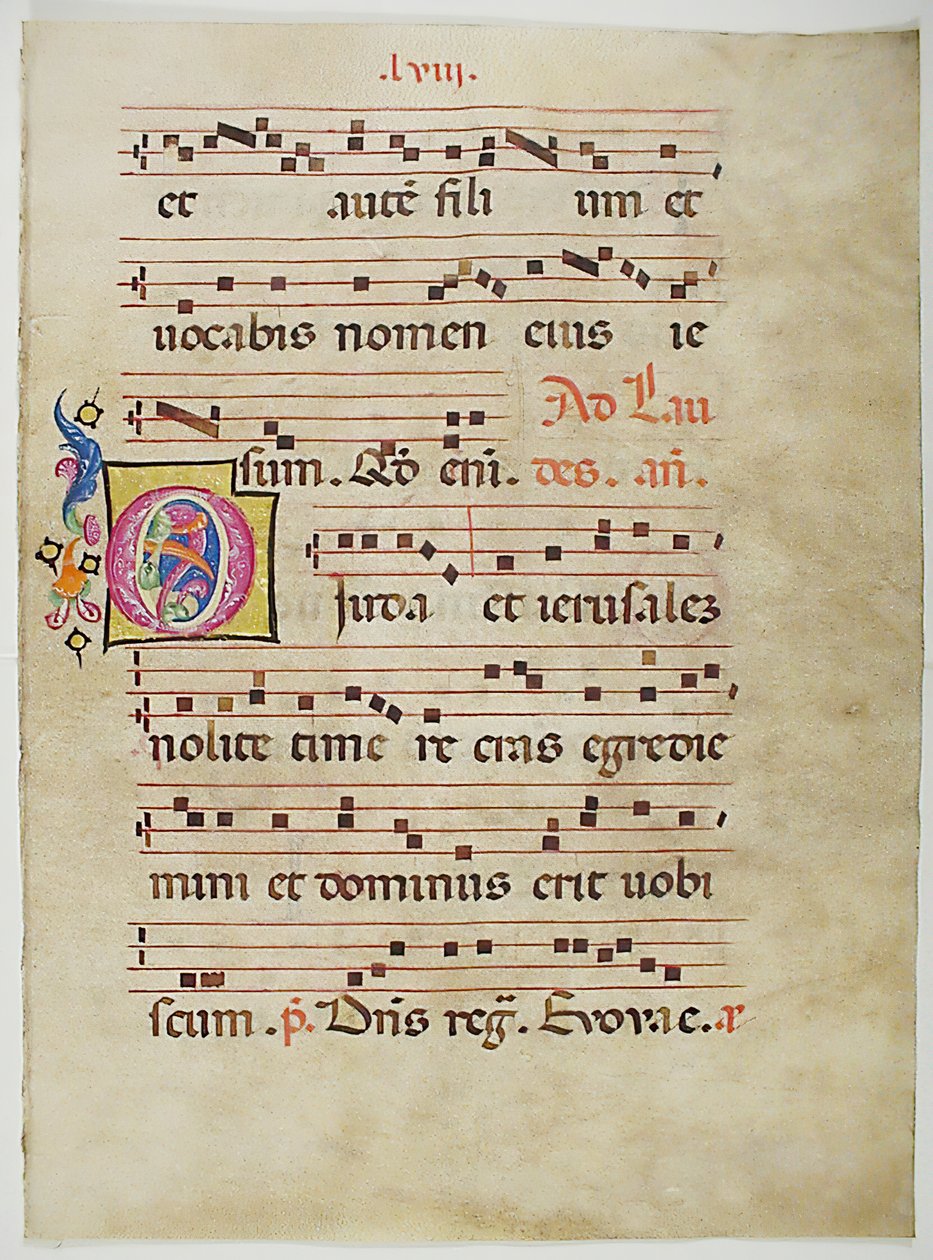 .lviij.
et autē fili um et
uocabis nomen eius ie
Ad Lau
sum. Qđ eni. des. an̄.
O Iuda et ierusalez
nolite time re cras egredie
mini et dominus erit uobi
scum. p̄. Dn̄s reg̃. Evovae. a